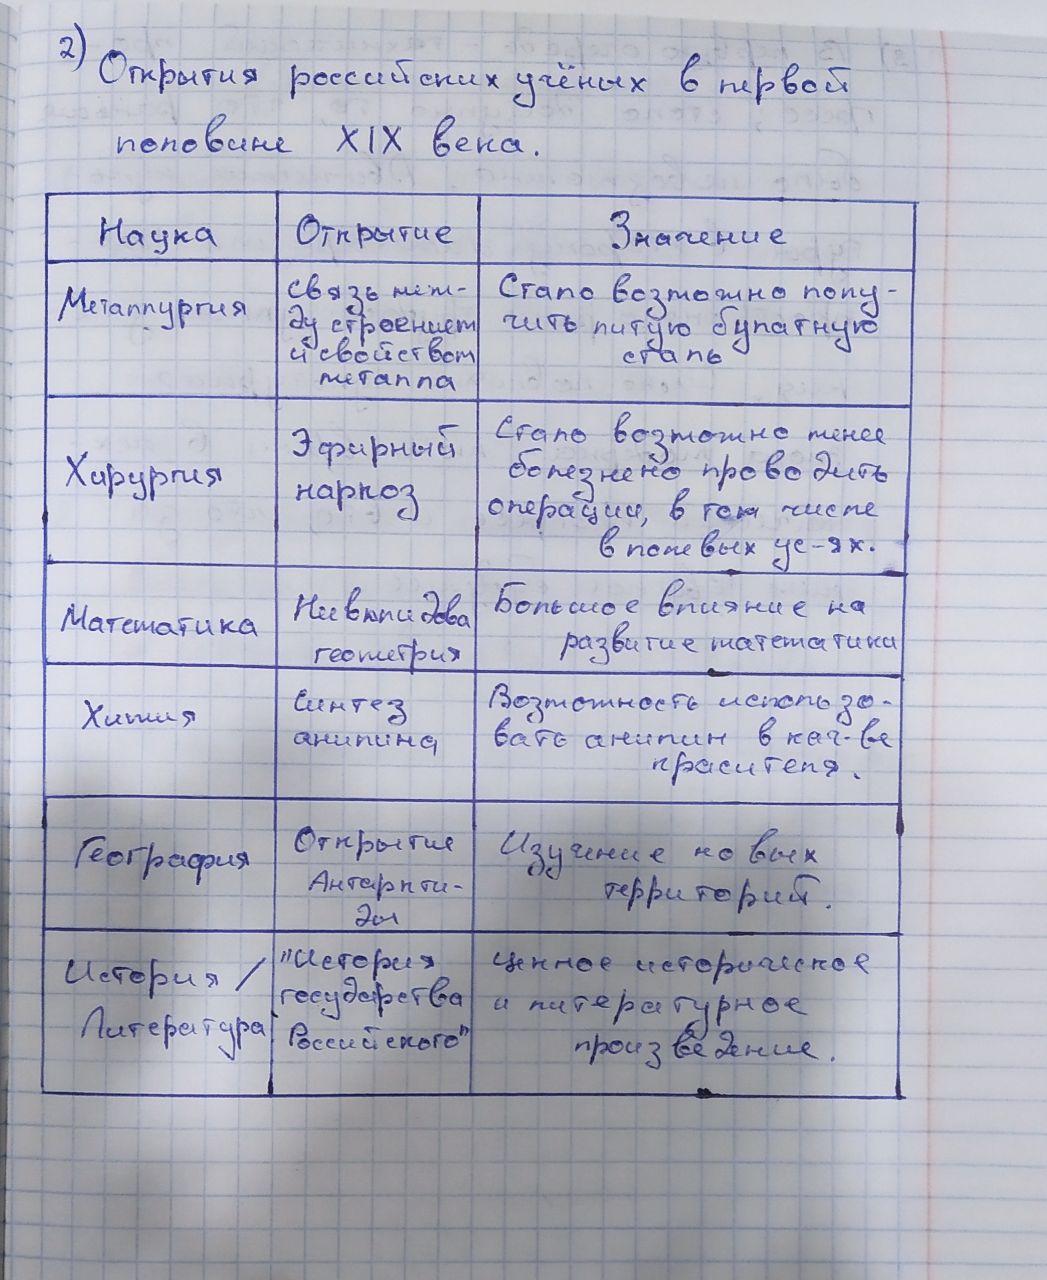 2)
Открытия российских учёных в первой
половине XIX века.
Наука
Открытие
Значение
Металлургия
связь меж-
ду строением
и свойством
металла
Стало возможно полу-
чить литую булатную
сталь
Хирургия
Эфирный
наркоз
Стало возможно менее
болезнено проводить
операции, в том числе
в полевых ус-ях.
Математика
Неевклидова
геометрия
Большое влияние на
развитие математики
Химия
Синтез
анилина
Возможность использо-
вать анилин в кач-ве
красителя.
География
Открытие
Антаркти-
ды
Изучение новых
территорий.
История /
Литература
"История
государства
Российского"
Ценное историческое
и литературное
произведение.